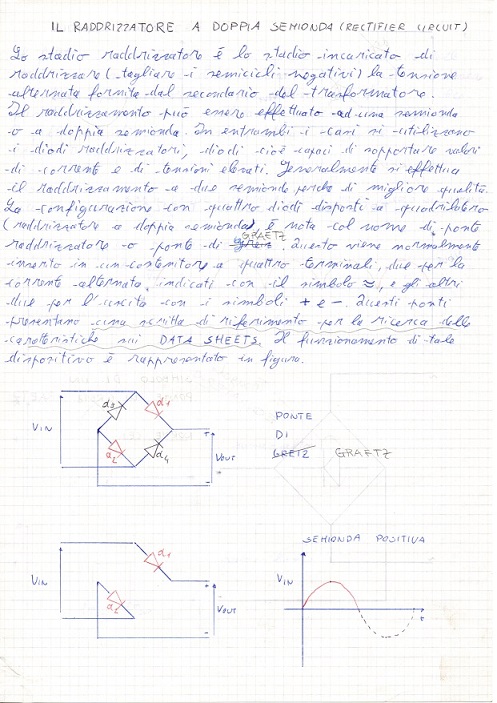 IL RADDRIZZATORE A DOPPIA SEMIONDA (RECTIFIER CIRCUIT)
Lo stadio raddrizzatore è lo stadio incaricato di
raddrizzare (tagliare i semicicli negativi) la tensione
alternata fornita dal secondario del trasformatore.
Il raddrizzamento può essere effettuato ad una semionda
o a doppia semionda. In entrambi i casi si utilizzano
i diodi raddrizzatori, diodi cioè capaci di sopportare valori
di corrente e di tensioni elevati. Generalmente si effettua
il raddrizzamento a due semionde perchè di migliore qualità.
La configurazione con quattro diodi disposti a quadrilatero
(raddrizzatore a doppia semionda) è nota col nome di ponte
raddrizzatore o ponte di GRAETZ. Questo viene normalmente
inserito in un contenitore a quattro terminali, due per la
corrente alternata, indicati con il simbolo ≈, e gli altri
due per l'uscita con i simboli + e -. Questi ponti
presentano una scritta di riferimento per la ricerca delle
caratteristiche sui DATA SHEETS. Il funzionamento di tale
dispositivo è rappresentato in figura.
d3 d1
VIN
d2 d4
+
VOUT
-
PONTE
DI
GRETZ GRAETZ
SEMIONDA POSITIVA
d1
VIN
d2
+
VOUT
-
VIN
t